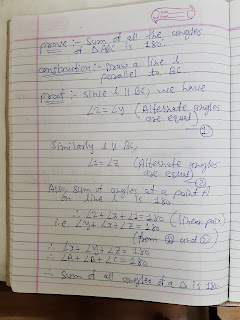 prove :- Sum of all the angles
of ΔABC is 180.
construction :- Draw a line l
parallel to BC
proof :- Since l || BC, we have
∠2 = ∠y (Alternate angles
are equal)
①
Similarly l || BC
∠1 = ∠z (Alternate angles
are equal)
②
Also, sum of angles at a point A
on line l is 180
∴ ∠2 + ∠x + ∠1 = 180 (linear pair)
i.e ∠y + ∠x + ∠z = 180
(from ① and ②)
∴ ∠x + ∠y + ∠z = 180
∴ ∠A + ∠B + ∠C = 180
∴ Sum of all angles of a Δ is 180